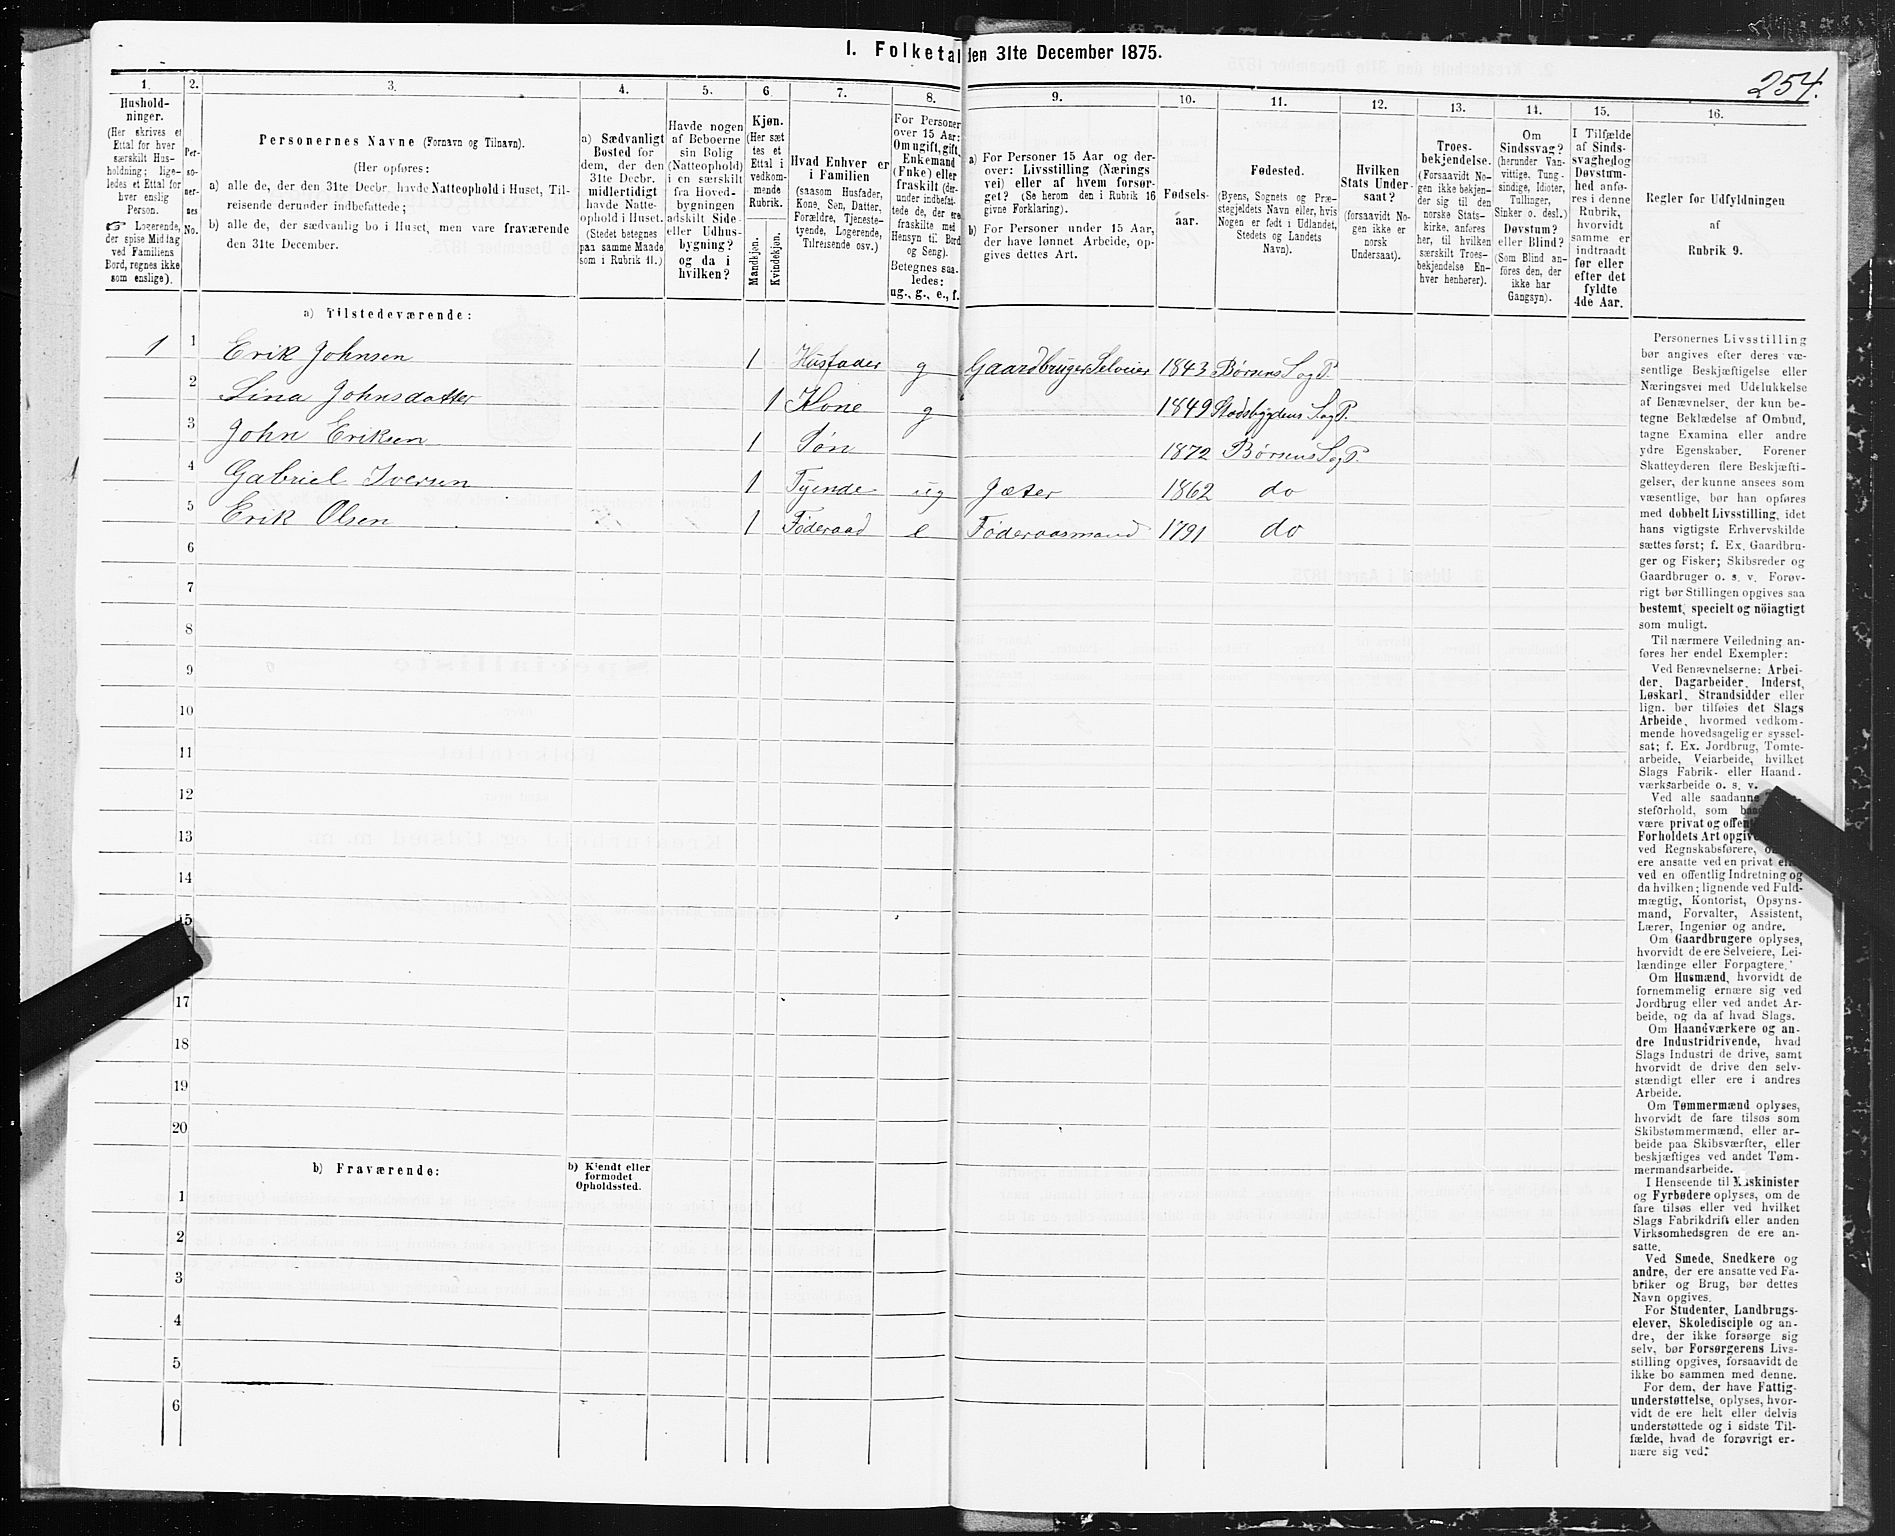 I. Folketal den 31te December 1875.
254.
1.
Hushold-
ninger.
(Her skrives et
Ettal for hver
særskilt Hus-
holdning; lige-
ledes et Ettal for
hver enslig
Person.
☞ Logerende,
der spise Middag
ved Familiens
Bord, regnes ikke
som enslige).
2.
Per-
so-
ner-
nes
No.
3.
Personernes Navne (Fornavn og Tilnavn).
(Her opføres:
a) alle de, der den 31te Decbr. havde Natteophold i Huset, Til-
reisende derunder indbefattede;
b) alle de, der sædvanlig bo i Huset, men vare fraværende
den 31te December.
4.
a) Sædvanligt
Bosted for
dem, der den
31te Decbr.
midlertidigt
havde Natte-
ophold i Huset.
(Stedet betegnes
paa samme Maade
som i Rubrik 11.)
5.
Havde nogen
af Beboerne
sin Bolig
(Natteophold)
i en særskilt
fra Hoved-
bygningen
adskilt Side-
eller Udhus-
bygning?
og da i
hvilken?
6.
Kjøn.
(Her sæt
tes et
Ettal i
vedkom-
mende
Rubrik.
Mandkjøn.
Kvindekjøn.
7.
Hvad Enhver er
i Familien
(saasom Husfader,
Kone, Søn, Datter,
Forældre, Tjeneste-
tyende, Logerende,
Tilreisende osv.)
8.
For Personer
over 15 Aar:
Om ugift, gift,
Enkemand
(Enke) eller
fraskilt (der-
under indbefat-
tede de, der ere
fraskilte med
Hensyn til Bord
og Seng).
Betegnes saa-
ledes:
ug., g., e., f.
9.
a) For Personer 15 Aar og der-
over: Livsstilling (Nærings
vei) eller af hvem forsør-
get? (Se herom den i Rubrik 16
givne Forklaring).
b) For Personer under 15 Aar,
der have lønnet Arbeide, op-
gives dettes Art.
10.
Fødsels-
aar.
11.
Fødested.
(Byens, Sognets og Præ-
stegjeldets Navn eller, hvis
Nogen er født i Udlandet,
Stedets og Landets
Navn).
12.
Hvilken
Stats Under-
saat?
(forsaavidt No-
gen ikke er
norsk
Undersaat).
13.
Troes-
bekjendelse.
(Forsaavidt No-
gen ikke bekjen-
der sig til den
norske Stats-
kirke, anføres
her, til hvilken
særskilt Troes-
bekjendelse En-
hver henhører).
14.
Om
Sindssvag?
(herunder Van-
vittige, Tung-
sindige, Idioter,
Tullinger,
Sinker o. desl.)
Døvstum?
eller Blind?
(Som Blind an-
føres den, der
ikke har
Gangsyn).
15.
I Tilfælde
af Sinds-
svaghed og
Døvstum-
hed anfø-
res i denne
Rubrik,
hvorvidt
samme er
indtraadt
før eller
efter det
fyldte
4de Aar.
16.
Regler for Udfyldningen
af
Rubrik 9.
a) Tilstedeværende:
1 1 Erik Johnsen 1 Husfader g Gaardbruger Selveier 1843 Børsens S og P.
2 Lina Johnsdatter 1 Kone g 1849 Stadsbygdens S og P.
3 John Eriksen 1 Søn 1872 Børsens S og P.
4 Gabriel Iversen 1 Tyende ug Jæter 1862 do
5 Erik Olsen 1 Føderaad e Føderaasmand 1791 do
6
7
8
9
10
11
12
13
14
15
17
18
19
20
b) Fraværende:
b) Kjendt eller
formodet
Opholdssted.
1
2
3
4
5
6
Personernes Livsstilling
bør angives efter deres væ-
sentlige Beskjæftigelse eller
Næringsvei med Udelukkelse
af Benævnelser, der kun be-
tegne Beklædelse af Ombud,
tagne Examina eller andre
ydre Egenskaber. Forener
Skatteyderen flere Beskjæfti-
gelser, der kunne ansees som
væsentlige, bør han opføres
med dobbelt Livsstilling, idet
hans vigtigste Erhvervskilde
sættes først; f. Ex. Gaardbru-
ger og Fisker; Skibsreder og
Gaardbruger o. s. v. Forøv-
rigt bør Stillingen opgives saa
bestemt, specielt og nöiagtigt
som muligt.
Til nærmere Veiledning an-
føres her endel Exempler:
Ved Benævnelserne: Arbei-
der, Dagarbeider, Inderst,
Løskarl, Strandsidder eller
lign. bør tilføies det Slags
Arbeide, hvormed vedkom-
mende hovedsagelig er syssel-
sat; f. Ex. Jordbrug, Tomte-
arbeide, Veiarbeide, hvilket
Slags Fabrik- eller Haand-
værksarbeide o. s. v.
Ved alle saadanne
steforhold, som
være privat og
Forholdets Art
ved Regnskabsførere,
ere ansatte ved en privat
ved en offentlig Indretning og
da hvilken; lignende ved Fuld-
mægtig, Kontorist, Opsyns-
mand, Forvalter, Assistent,
Lærer, Ingeniør og andre.
Om Gaardbrugere oplyses,
hvorvidt de ere Selveiere, Lei-
lændinge eller Forpagtere.
Om Husmænd, hvorvidt de
fornemmelig ernære sig ved
Jordbrug eller ved andet Ar-
beide, og da af hvad Slags.
Om Haandværkere og an-
dre Industridrivende, hvad
Slags Industri de drive, samt
hvorvidt de drive den selv-
stændigt eller ere i andres
Arbeide.
Om Tømmermænd oplyses,
hvorvidt de fare tilsøs som
Skibstømmermænd, eller ar-
beide paa Skibsværfter, eller
beskjæftiges ved andet Tøm-
mermandsarbeide.
I Henseende til Maskinister
og Fyrbødere oplyses, om de
fare tilsøs eller ved hvilket
Slags Fabrikdrift eller anden
Virksomhedsgren de ere an-
satte.
Ved Smede, Snedkere og
andre, der ere ansatte ved Fa-
briker og Brug, bør dettes
Navn opgives.
For Studenter, Landbrugs-
elever, Skoledisciple og an-
dre, der ikke forsørge sig
selv, bør Forsørgerens Livs-
stilling opgives, forsaavidt de
ikke bo sammen med denne.
For dem, der have Fattig-
understøttelse, oplyses, hvor-
vidt de ere helt eller delvis
understøttede og i sidste Til-
fælde, hvad de forøvrigt er-
nære sig ved.